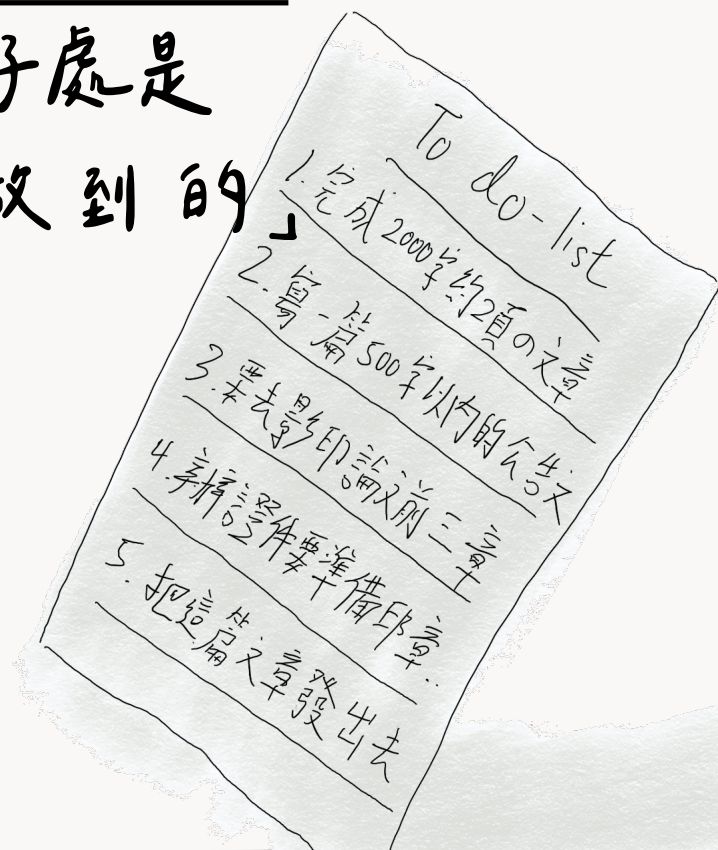 子處是
放到的」
To do-list
1.完成2000字約2頁の文章
2.寫一篇500字以內的公告文
3.要去影印論文前三章
4.辦證件要準備印章..
5.把這篇文章發出去